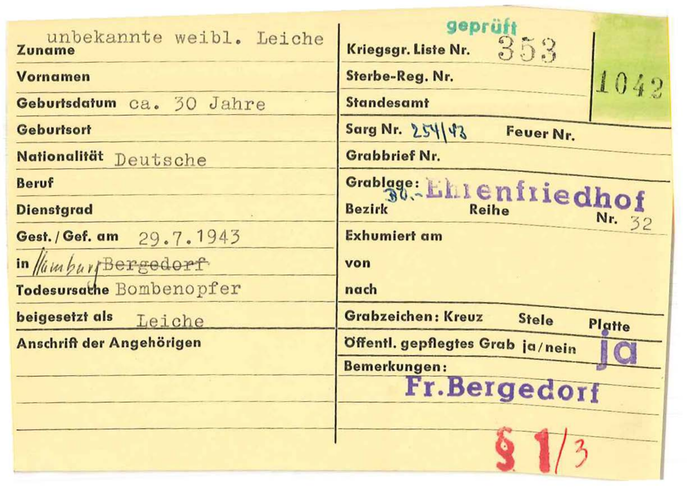 unbekannte weibl. Leiche
Zuname
Vornamen
Geburtsdatum ca. 30 Jahre
Geburtsort
Nationalität Deutsche
Beruf
Dienstgrad
Gest./Gef. am 29.7.1943
in Hamburg Bergedorf
Todesursache Bombenopfer
beigesetzt als Leiche
Anschrift der Angehörigen
geprüft
Kriegsgr. Liste Nr. 353
1042
Sterbe-Reg. Nr.
Standesamt
Sarg Nr. 254/43 Feuer Nr.
Grabbrief Nr.
Grablage: BO.- Ehrenfriedhof
Bezirk Reihe Nr. 32
Exhumiert am
von
nach
Grabzeichen: Kreuz Stele Platte
Öffentl. gepflegtes Grab ja/nein ja
Bemerkungen:
Fr.Bergedorf
§ 1/3